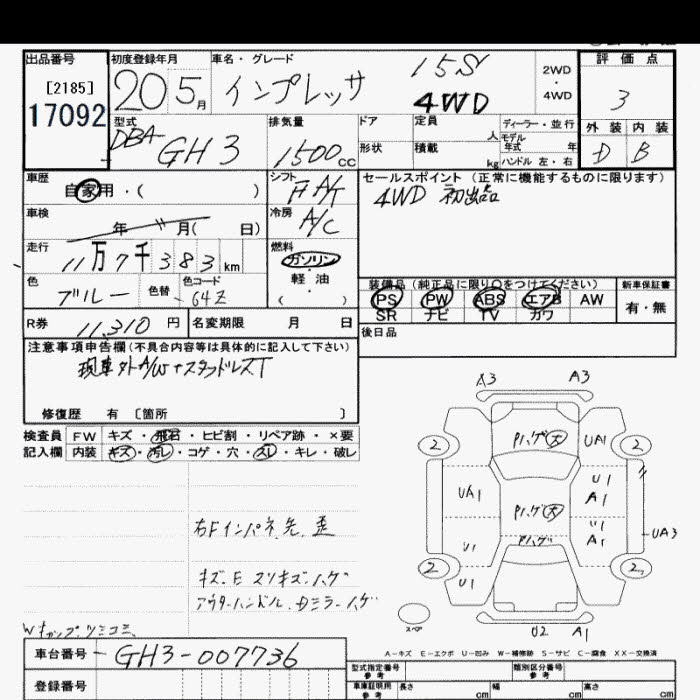 出品番号 初度登録年月 車名・グレード 15S 2WD・4WD 評価点
[2185] 17092 20 5月 インプレッサ 4WD 3
型式 DBA GH3 排気量 1500cc ドア 定員 人 ディーラー・並行 外装 内装
形状 積載 kg モデル年式 年 ハンドル 左・右 D B
車歴 自家用・( ) シフト F A/T セールスポイント(正常に機能するものに限ります)
4WD 初出品
車検 年 月( 日) 冷房 A/C
走行 11万7千383km 燃料 ガソリン・軽油・( )
色 ブルー 色替 色コード 64Z
装備品(純正品に限り○をつけてください) 新車保証書
PS PW ABS エアB AW 有・無
SR ナビ TV カワ
R券 11,310円 名変期限 月 日 後日品
注意事項申告欄(不具合内容等は具体的に記入して下さい)
現車外A/W+スタッドレスT
修復歴 有 〔箇所 〕
検査員 FW キズ・飛石・ヒビ割・リペア跡・×要
記入欄 内装 キズ・汚レ・コゲ・穴・スレ・キレ・破レ
A3 A3
Pハゲ大
2 UA1 2
UA1 U1 A1
Pハゲ大
U1 Pハゲ A1 UA3
2 U1 2
スペ U2 A1
右Fインパネ先歪
キズ.E スリキズ.ハゲ
アウターハンドル.ミラーハゲ
A-キズ E-エクボ U-凹み W-補修跡 S-サビ C-腐食 XX-交換済
車台番号 GH3-007736
型式指定番号 参考 類別区分番号 参考
登録番号 車庫証明用 参考 長さ cm 幅 cm 高さ cm